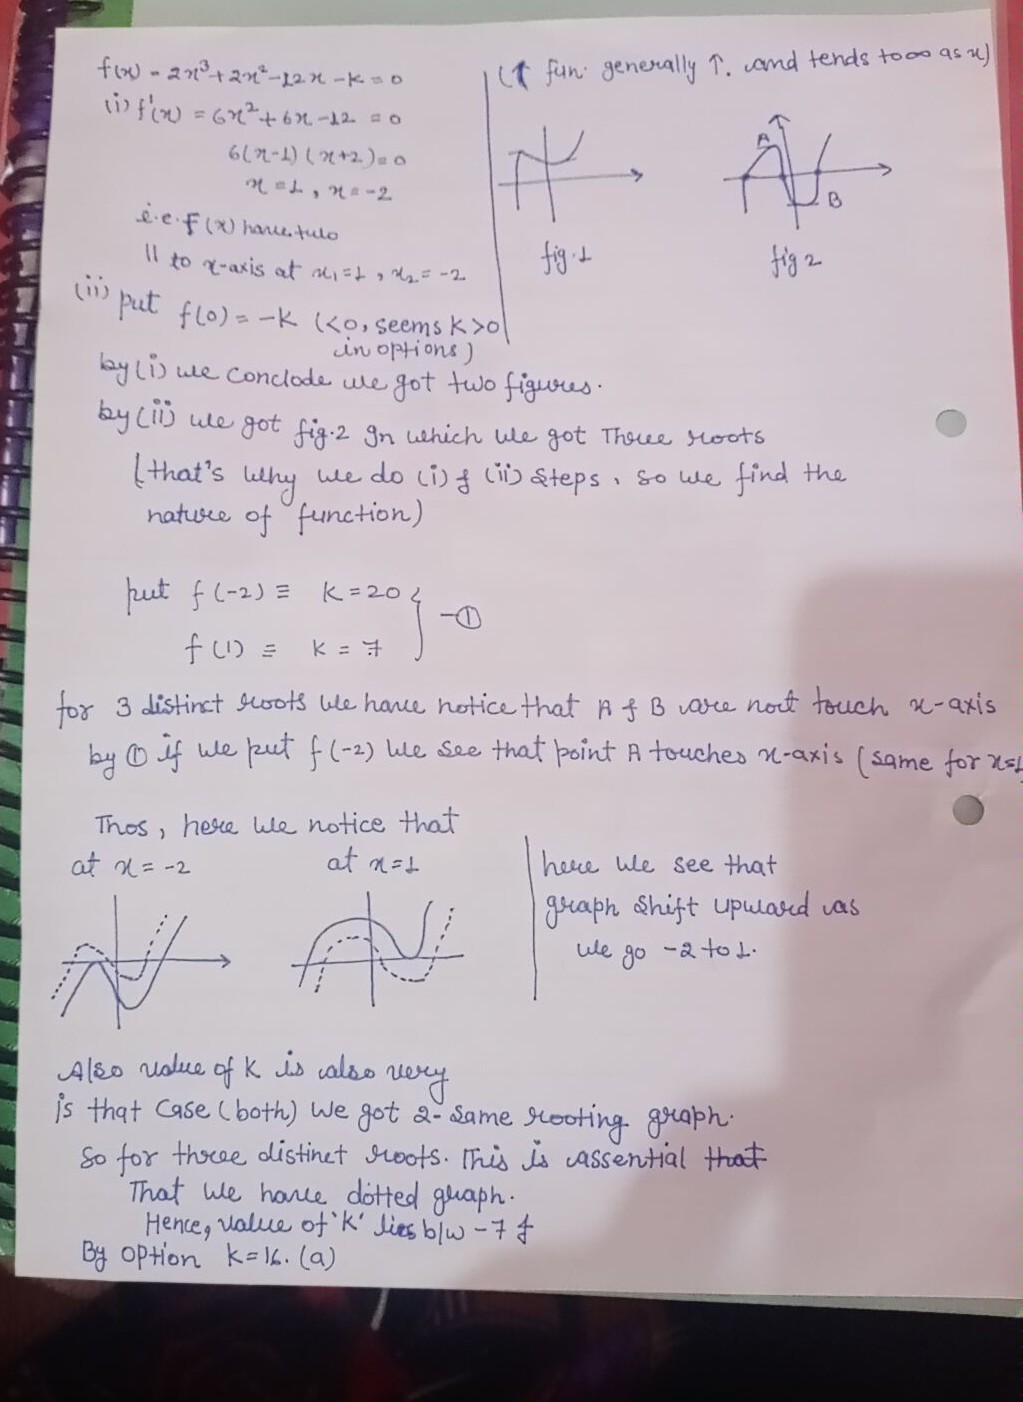 f(x) = 2x³+2x²-12x -K = 0
(i) f'(x) = 6x²+6x-12 = 0
6(x-1)(x+2)=0
x=1, x=-2
i.e. f(x) have two
|| to x-axis at x₁=1, x₂=-2
(↑ fun. generally ↑. and tends to ∞ as x)
A
B
fig.1
fig 2
(ii) put f(0) = -K (<0, seems K>0
in options)
by (i) we conclode we got two figures.
by (ii) we got fig.2 In which we got Three roots
(that's why we do (i) & (ii) steps, so we find the
nature of function)
put f(-2) ≡ K=20 } -①
f(1) ≡ K = 7
for 3 distinct roots we have notice that A & B are not touch x-axis
by ① if we put f(-2) we see that point A touches x-axis (same for x=1
Thos, here we notice that
at x=-2
at x=1
here we see that
graph shift upward as
we go -2 to 1.
Also value of K is also very
is that case (both) we got 2-same rooting graph.
So for three distinct roots. This is assential that
That we have dotted graph.
Hence, value of 'K' lies b/w -7 &
By option K=16. (a)